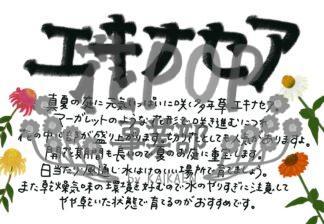 エキナセア
真夏の庭に元気いっぱいに咲く多年草、エキナセア。
マーガレットのような花形で咲き進むにつれ
花の中心が盛り上がります。切り花としても人気がありますよ。
開花期間も長いので夏のお庭に重宝します。
日当たり、風通し、水はけのいい場所で育てましょう。
また乾燥気味の土壌を好むので水のやりすぎに注意して
やや乾いた状態で育てるのがおすすめです。
花POP
by KAIKABU